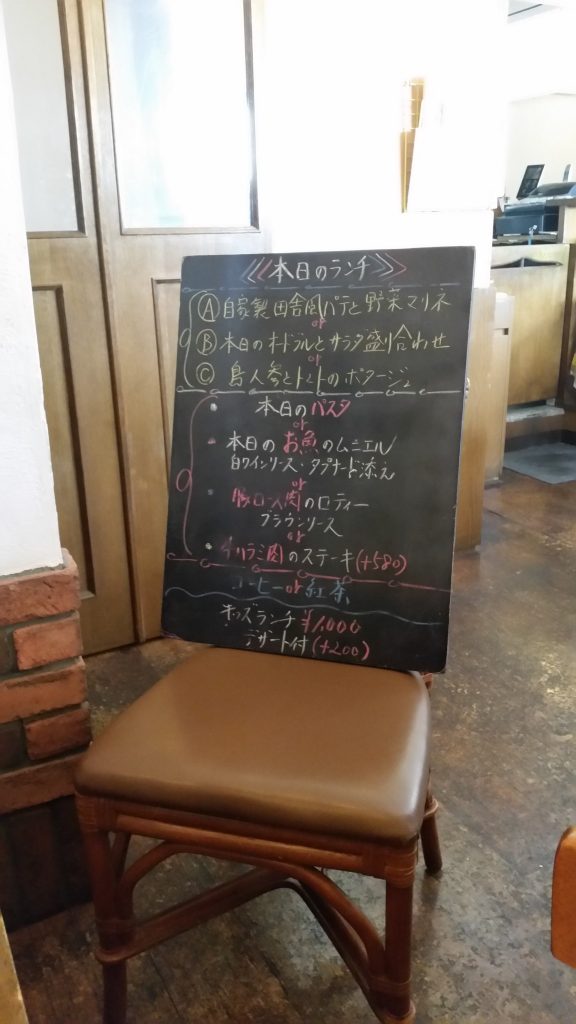 本日のランチ
Ⓐ自家製田舎風パテと野菜マリネ
or
Ⓑ本日のオードブルとサラダ盛り合わせ
or
Ⓒ島人参とトマトのポタージュ
本日のパスタ
or
本日のお魚のムニエル
白ワインソース・タプナード添え
or
豚ロース肉のロティー
ブラウンソース
or
イチラミ肉のステーキ(+580)
コーヒーor紅茶
キッズランチ ¥1,000
デザート付(+200)